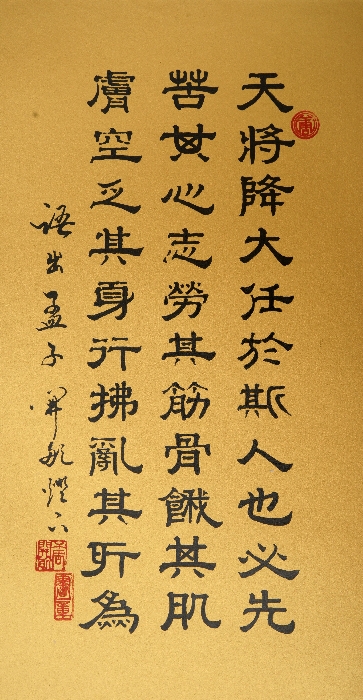 天將降大任於斯人也必先
苦其心志勞其筋骨餓其肌
膚空乏其身行拂亂其所為
語出孟子 開敏燈下